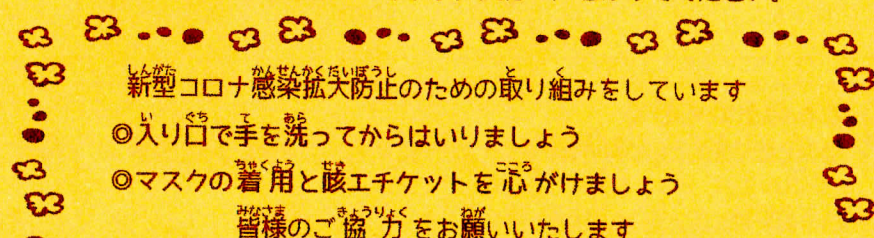 新型コロナ感染拡大防止のための取り組みをしています
◎入り口で手を洗ってからはいりましょう
◎マスクの着用と咳エチケットを心がけましょう
皆様のご協力をお願いいたします